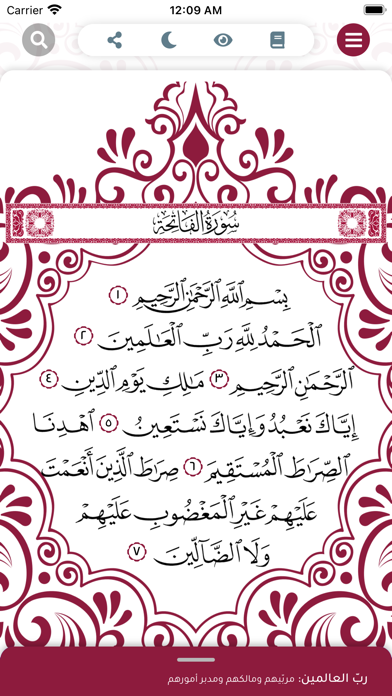 Carrier 12:09 AM
سُورَةُ الْفَاتِحَةِ
بِسْمِ ٱللَّهِ ٱلرَّحْمَٰنِ ٱلرَّحِيمِ ١
ٱلْحَمْدُ لِلَّهِ رَبِّ ٱلْعَٰلَمِينَ ٢
ٱلرَّحْمَٰنِ ٱلرَّحِيمِ ٣ مَٰلِكِ يَوْمِ ٱلدِّينِ ٤
إِيَّاكَ نَعْبُدُ وَإِيَّاكَ نَسْتَعِينُ ٥ ٱهْدِنَا
ٱلصِّرَٰطَ ٱلْمُسْتَقِيمَ ٦ صِرَٰطَ ٱلَّذِينَ أَنْعَمْتَ
عَلَيْهِمْ غَيْرِ ٱلْمَغْضُوبِ عَلَيْهِمْ
وَلَا ٱلضَّآلِّينَ ٧
ربّ العالمين: مربّيهم ومالكهم ومدبر أمورهم